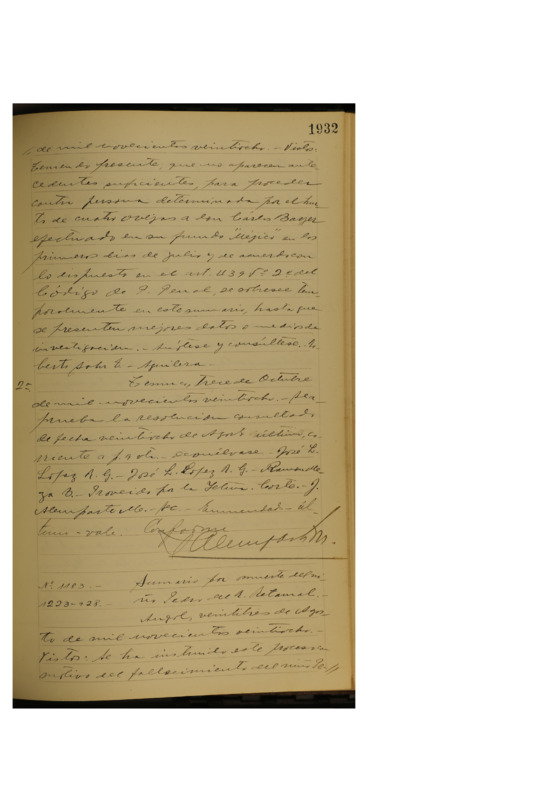 1932
de mil novecientos veintiocho.- Vistos:
teniendo presente, que no aparecen ante
cedentes suficientes, para proceder
contra persona determinada por el hur
to de cuatro ovejas a don Cárlos
efectuado en su fundo "Méjico" en los
primeros dias de Julio y, de acuerdo con
lo dispuesto en el art 439 Nº 2º del
Código de P. Penal, se sobresee tem
poralmente en este sumario, hasta que
se presenten mejores datos o medios de
investigacion.- Anótese y consúltese.
Aguilera.-
2º Temuco, trece de Octubre
de mil novecientos veintiocho.- Se a
prueba la resolucion consultada
de fecha veintiocho de Agosto último, co
rriente a Devuélvase. José L.
Lopez A. G.- José L. Lopez A. G.- Ramon
za B.- Proveido por la Iltma. Corte.- J.
Alemparte M.- Enmendado- úl
timo- vale. Conforme
J Alemparte M.
Nº 1183.- Sumario por muerte del ni
1223-928.- ño Pedro del R. Retamal.-
Angol, veintitres de Agos
to de mil novecientos veintiocho.-
Vistos: Se ha instruido este proceso con
motivo del fallecimiento del niño Pe